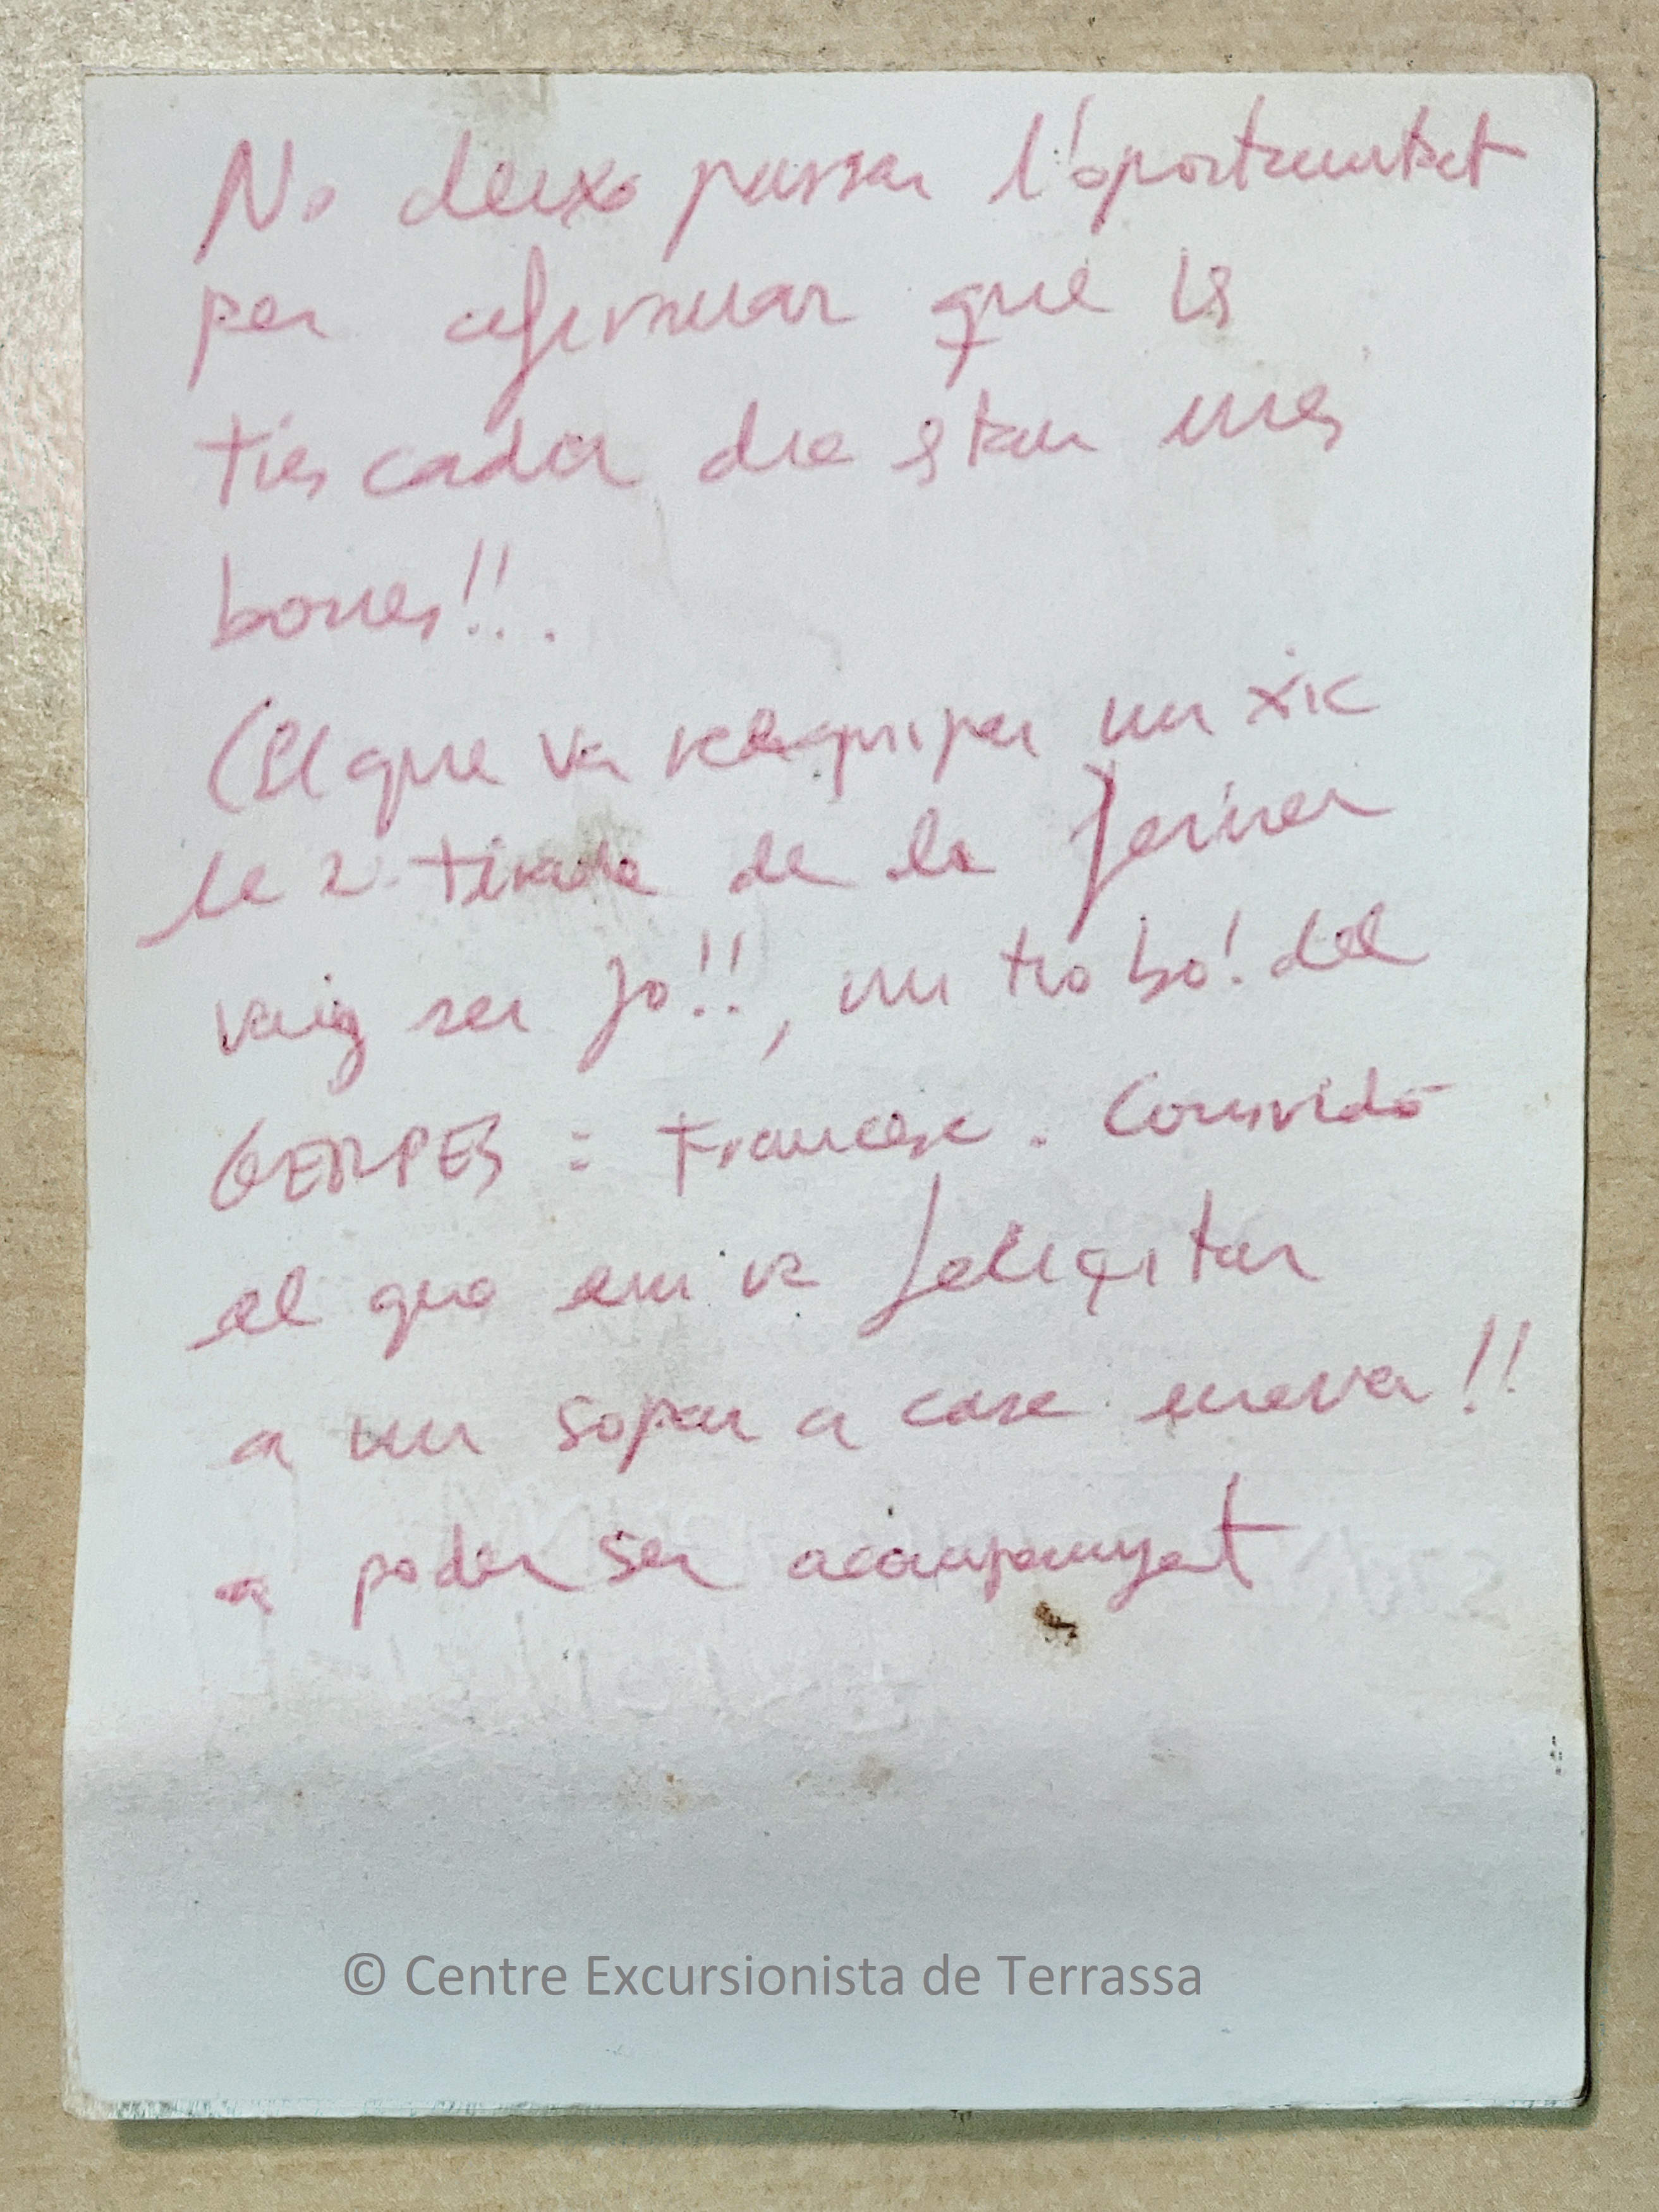 No deixo passar l'oportunitat
per afirmar que les
ties cada die stan mes
bones!!.
(El que va reequipar un xic
la 2ª tirada de la Ferrer
vaig ser jo!!, un tio bo! del
GERPES = Francesc. Convido
al que em va feliçitar
a un sopar a casa meva!!
a poder ser acompanyat
© Centre Excursionista de Terrassa